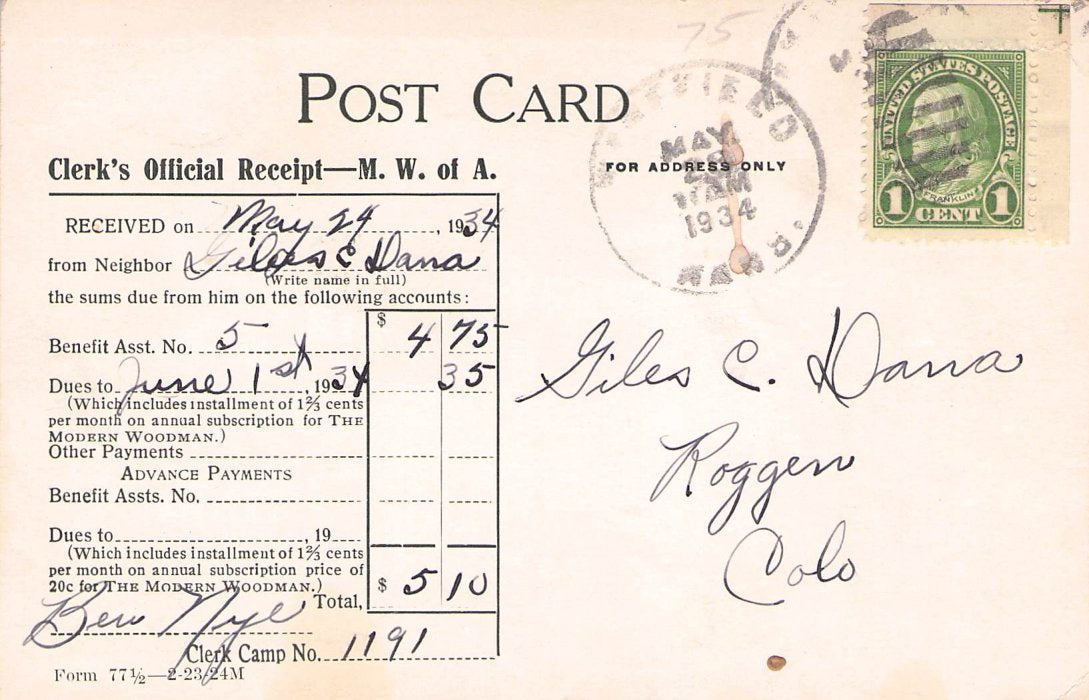 75
POST CARD
Clerk's Official Receipt—M. W. of A.
RECEIVED on May 24, 1934
from Neighbor Giles C Dana
(Write name in full)
the sums due from him on the following accounts:
$
Benefit Asst. No. 5 4 75
Dues to June 1st, 1934 35
(Which includes installment of 1⅔ cents
per month on annual subscription for THE
MODERN WOODMAN.)
Other Payments
ADVANCE PAYMENTS
Benefit Assts. No.
Dues to, 19
(Which includes installment of 1⅔ cents
per month on annual subscription price of
20c for THE MODERN WOODMAN.)
Total, $ 5 10
Ben Nye
Clerk Camp No. 1191
Form 77½—2-23-24M
FOR ADDRESS ONLY
MAY
AM
1934
KANS.
UNITED STATES POSTAGE
FRANKLIN
1 CENT 1
Giles C. Dana
Roggen
Colo